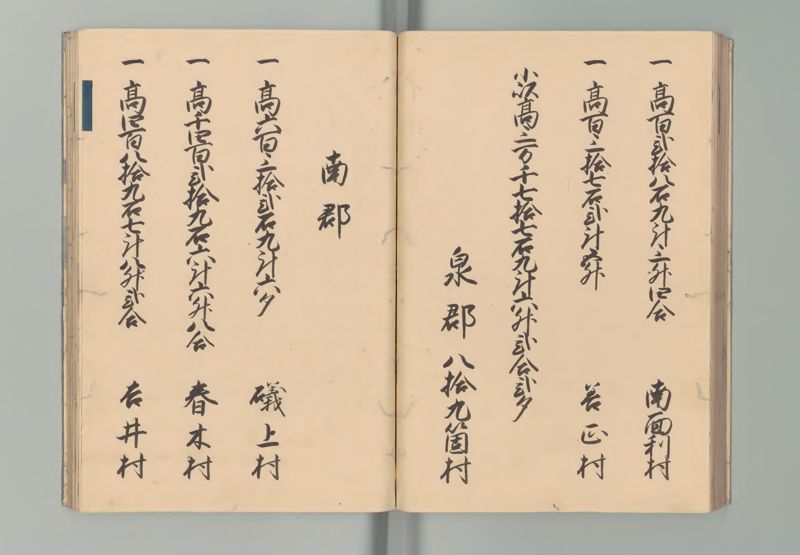 一 高百弐拾八石九斗三升四合 南面利村
一 高百三拾七石弐斗五升 善正村
小以高三万千七拾七石九斗六升弐合弐夕
泉郡 八拾九箇村
南郡
一 高六百三拾弐石九斗六夕 磯上村
一 高千四百弐拾九石六斗六升八合 春木村
一 高四百八拾九石七斗八升弐合 吉井村